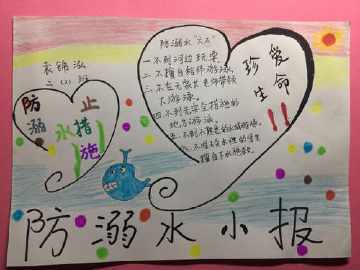 袁锦泓
二(四)班
防 止
溺水措
施
防溺水"六不"
一不到河边玩耍
二.不擅自结伴游泳.
三.不在无家长老师带领
下游泳.
四.不到无安全措施的
地方游泳.
五.不到不熟悉的水域游泳.
六.不
擅自下水施救.
珍爱
生命!!
防溺水小报